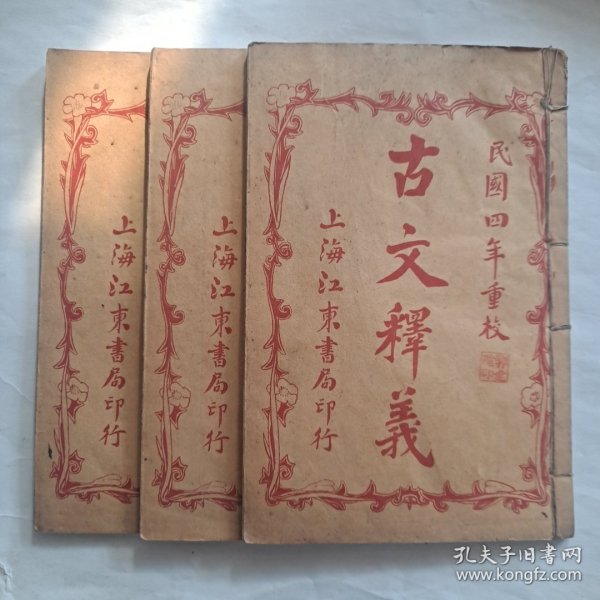 民國四年重校
古文釋義
上海江東書局印行
上海江東書局印行
上海江東書局印行
孔夫子旧书网
www.kongfz.com